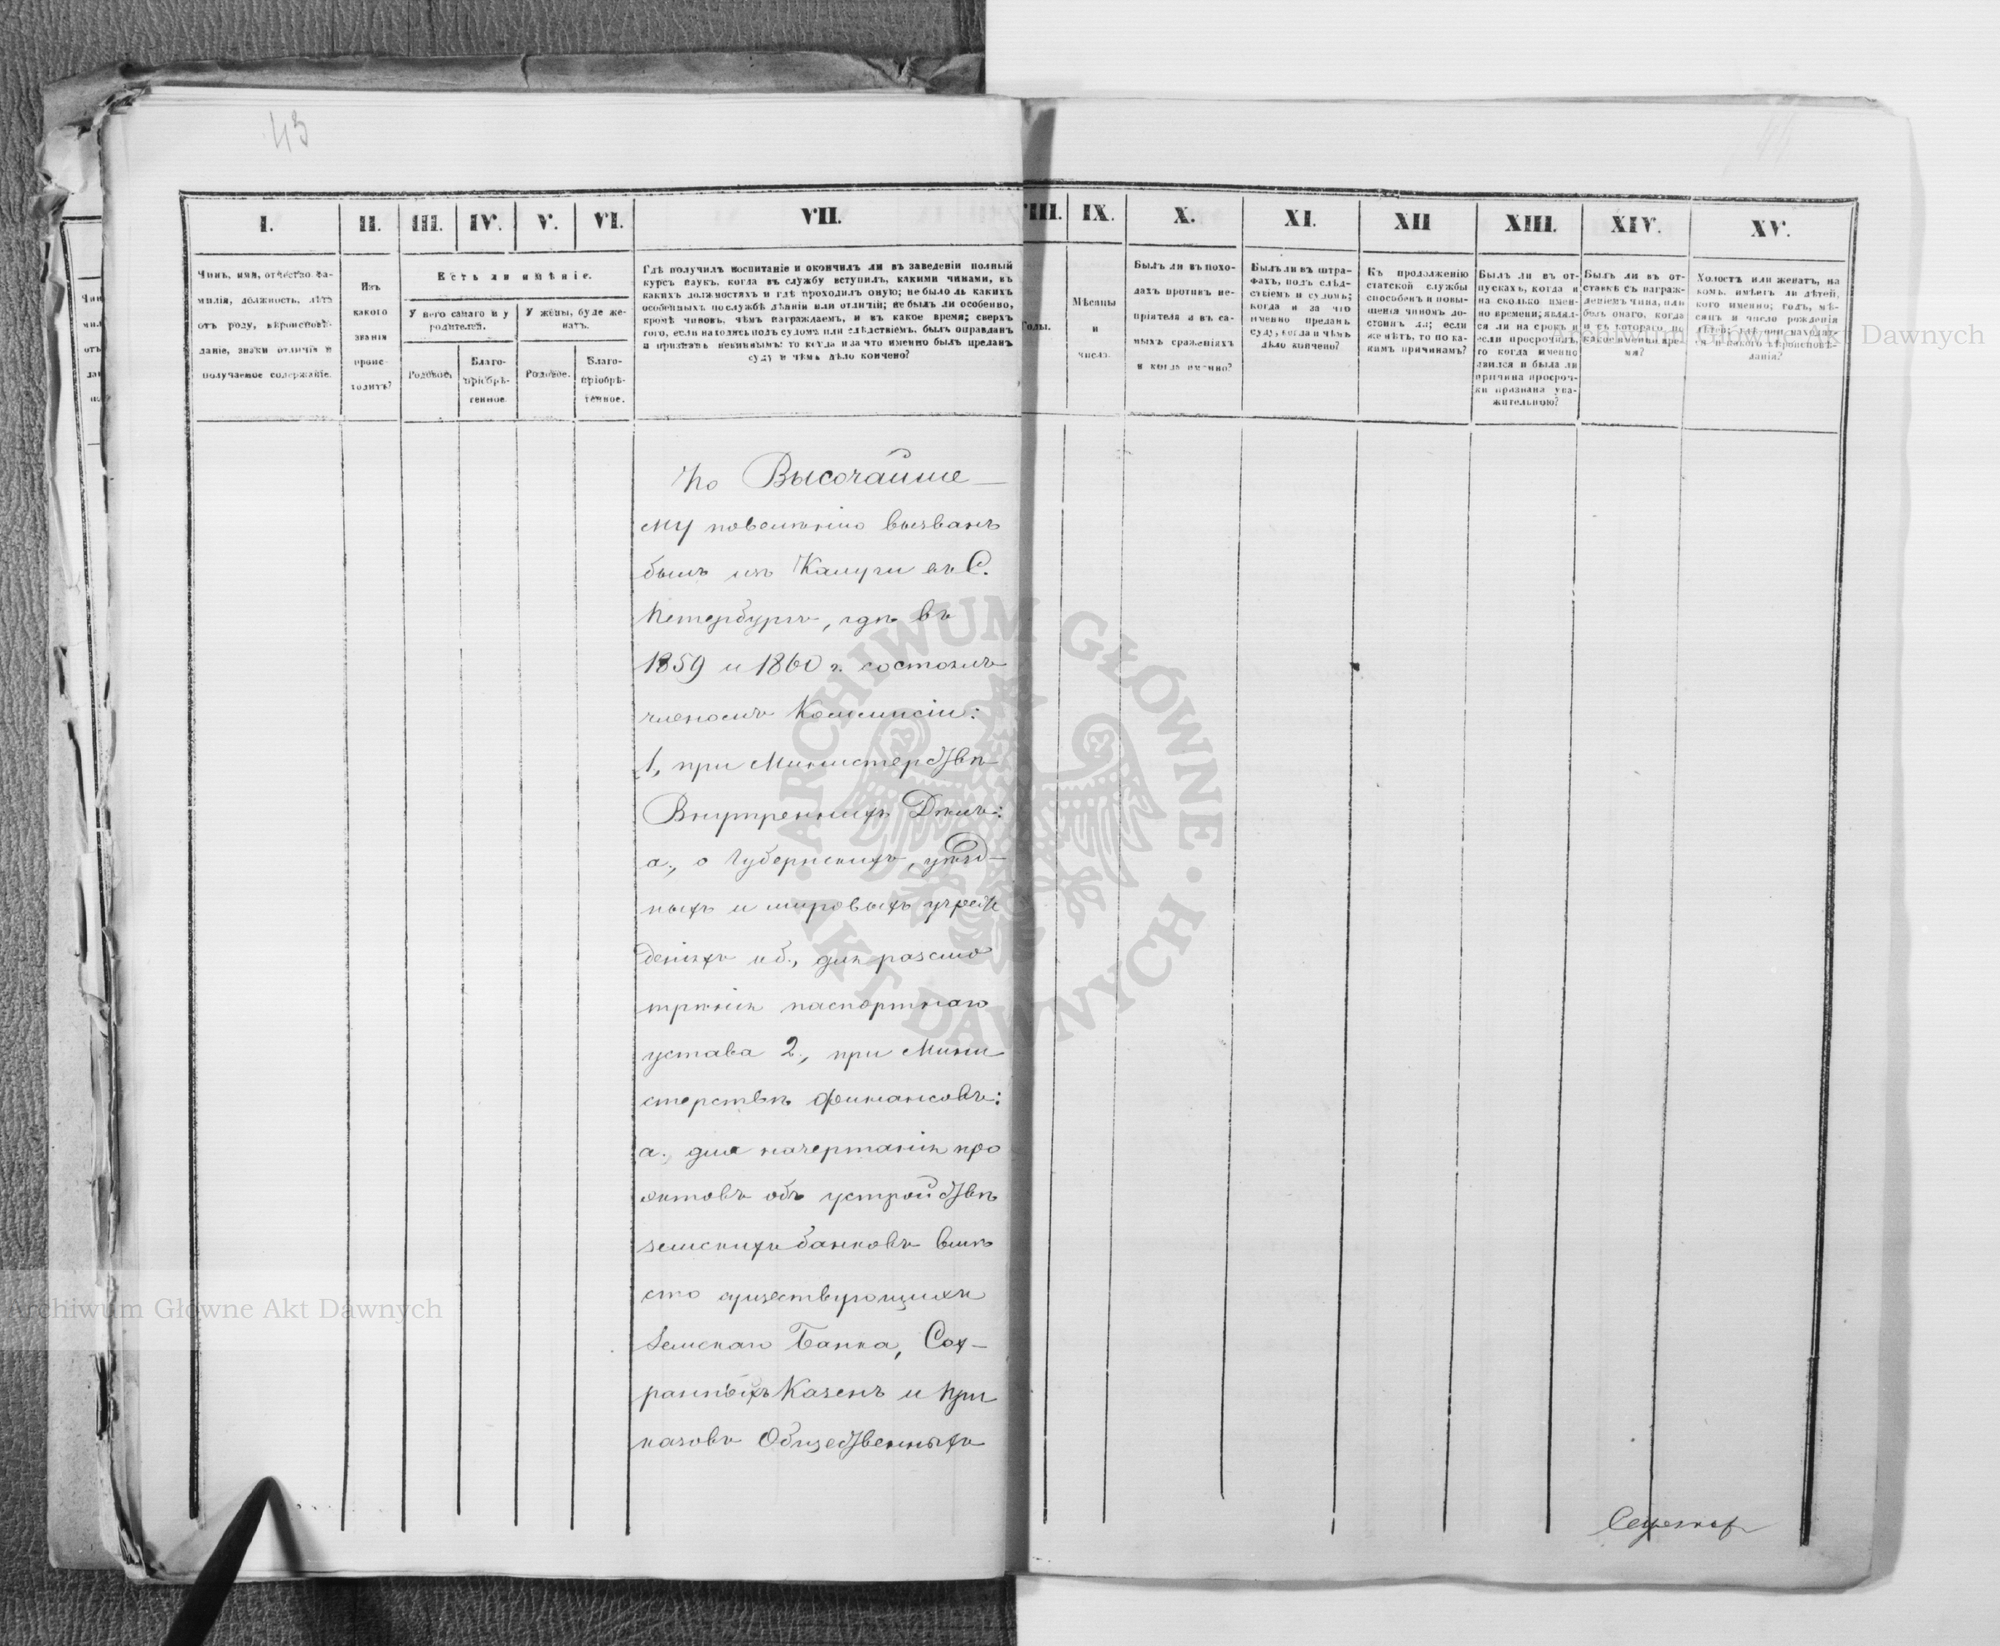 43
I.
II.
III.
IV.
V.
VI.
VII.
VIII.
IX.
X.
XI.
XII
XIII.
XIV.
XV.
Чинъ, имя, отчество фа-
милія, должность, лѣтъ
отъ роду, вѣроисповѣ-
даніе, знаки отличія и
получаемое содержаніе.
Изъ
какого
званія
проис-
ходитъ?
Есть ли имѣніе.
У него самаго и у
родителей.
У жены, буде же-
натъ.
Родовое.
Благо-
пріобрѣ-
тенное.
Родовое.
Благо-
пріобрѣ-
тенное.
Гдѣ получилъ воспитаніе и окончилъ ли въ заведеніи полный
курсъ наукъ, когда въ службу вступилъ, какими чинами, въ
какихъ должностяхъ и гдѣ проходилъ оную; не было ль какихъ
особенныхъ по службѣ дѣяній или отличій; не былъ ли особенно,
кромѣ чиновъ, чѣмъ награждаемъ, и въ какое время; сверхъ
того, если находясь подъ судомъ или слѣдствіемъ, былъ оправданъ
и признанъ невиннымъ: то когда и за что именно былъ преданъ
суду и чѣмъ дѣло кончено?
Годы.
Мѣсяцы
и
числа.
Былъ ли въ похо-
дахъ противъ не-
пріятеля и въ са-
мыхъ сраженіяхъ
и когда именно?
Былъ ли въ штра-
фахъ, подъ слѣд-
ствіемъ и судомъ;
когда и за что
именно преданъ
суду, когда и чѣмъ
дѣло кончено?
Къ продолженію
статской службы
способенъ и повы-
шенія чиномъ до-
стоинъ ли; если
же нѣтъ, то по ка-
кимъ причинамъ?
Былъ ли въ от-
пускахъ, когда и
на сколько имен-
но времени; являл-
ся ли на срокъ и
если просрочилъ,
то когда именно
явился и была ли
причина просроч-
ки признана ува-
жительною?
Былъ ли въ от-
ставкѣ съ награж-
деніемъ чина, или
безъ онаго, когда
и съ котораго по
какое именно вре-
мя?
Холостъ или женатъ, на
комъ, имѣетъ ли дѣтей,
кого именно; годъ, мѣ-
сяцъ и число рожденія
дѣтей; гдѣ они находят-
ся и какого вѣроисповѣ-
данія?
По Высочайше-
му повелѣнію вызванъ
былъ изъ Калуги въ С.
Петербургъ, гдѣ въ
1859 и 1860 г. состоялъ
членомъ Коммисіи:
1, при Министерствѣ
Внутреннихъ Дѣлъ:
а., о губернскихъ, уѣзд-
ныхъ и мировыхъ учреж
деніяхъ и б., для разсмо
трѣнія паспортнаго
устава 2., при Мини
стерствѣ финансовъ:
а., для начертанія про
эктовъ объ устройствѣ
земскихъ банковъ вмѣ
сто существующихъ
Земскаго Банка, Сох-
ранныхъ Казенъ и При
казовъ Общественныхъ
Archiwum Główne Akt Dawnych
Archiwum Główne Akt Dawnych
ARCHIWUM GŁÓWNE · AKT DAWNYCH ·